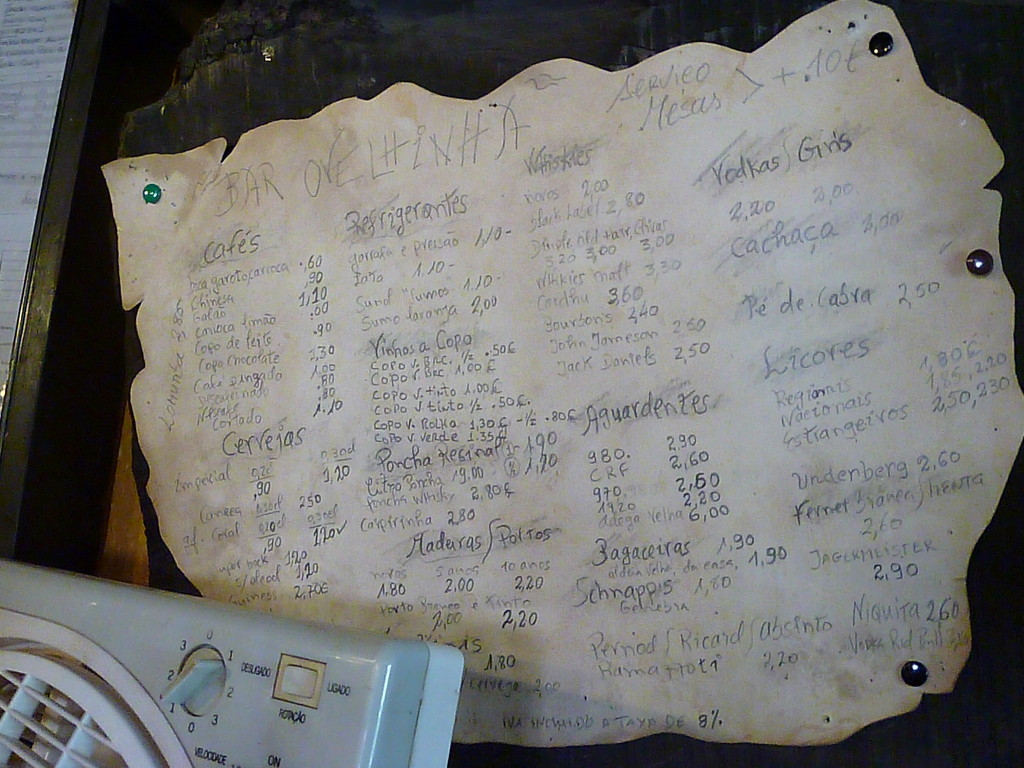 BAR OVELHINHA
SERVIÇO
MESAS > + .10€
Cafés
bica garoto, carioca .60
Chinesa .90
Galão 1,10
carioca limão .60
Copo de leite .90
Copo chocolate
Café pingado 1.00
Descafeinado .80
Nescafé .80
Cortado 1.10
Cervejas
Imperial
.90 1,20
Caneca 250
Coral
.90 1,20
super bock 1,20
s/alcool 1,20
Guiness 2,70€
Refrigerantes
garrafa e pressão 1,10-
lata 1.10-
Sumol "Sumos 1.10-
Sumo laranja 2,00
Vinhos a Copo
COPO V. BRC. 1/2 .50€
COPO V. BRC. 1,00€
COPO V. tinto 1,00€
COPO V. tinto 1/2 .50€.
COPO V. ROLHA 1,30€ -1/2 .80€
COPO V. VERDE 1.35
Poncha Regional 1,90
Litro Poncha 19.00 1,20
Poncha Whisky 2,80€
Caipirinha 2,80
Madeiras/Portos
novos 5 anos 10 anos
1.80 2,00 2,20
Porto Branco e tinto
2,00 2,20
1,80
cerveja 2,00
IVA INCLUIDO A TAXA DE 8%
Whiskies
novos 2,00
Black Label 2,80
Dimple, old Parr, Chivas
3.20 3,00 3,00
Whiskies malt 3,30
Cardhu 3,60
Bourbons 2,40
John Jameson 2,50
Jack Daniels 2,50
Aguardentes
980. 2,90
CRF 2,60
970. 2,50
1920 2,20
Adega Velha 6,00
Bagaceiras 1,90
aldeia velha, da casa, 1,90
Schnapps 1,80
Genebra
Pernod/Ricard/Absinto
2,20
Vodkas/Gin's
2,20 2,00
Cachaça 2,50
Pé de Cabra 2,50
Licores
Regionais 1,80€
Nacionais 1,85, 2,20
Estrangeiros 2,50, 2,30
Underberg 2,60
Fernet Branca/MENTA
2,60
JAGERMEISTER
2,90
Niquita 2,60
Vodka Red Bull
0
1
2
3
0
1
2
3
DESLIGADO
LIGADO
ROTAÇÃO
VELOCIDADE
ON